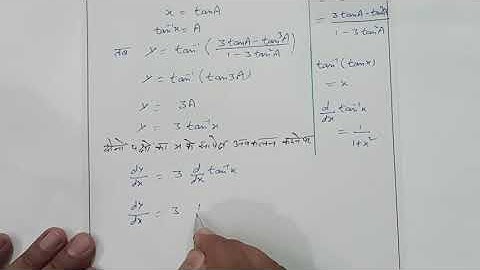 x = tanA
tan⁻¹x = A
तब y = tan⁻¹ ( (3tanA - tan³A) / (1 - 3tan²A) )
y = tan⁻¹ (tan3A)
y = 3A
y = 3 tan⁻¹x
दोनो पक्षो का x के सापेक्ष अवकलन करनेपर
dy/dx = 3 d/dx tan⁻¹x
dy/dx = 3
= (3tanA - tan³A) / (1 - 3tan²A)
tan⁻¹ (tanx)
= x
d/dx tan⁻¹x
= 1 / (1+x²)